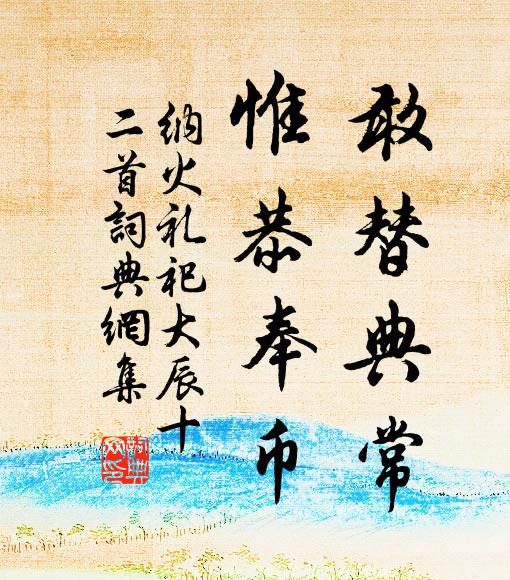 敢替典常
惟恭奉币
纳火礼祀大辰十
二首詞典網集